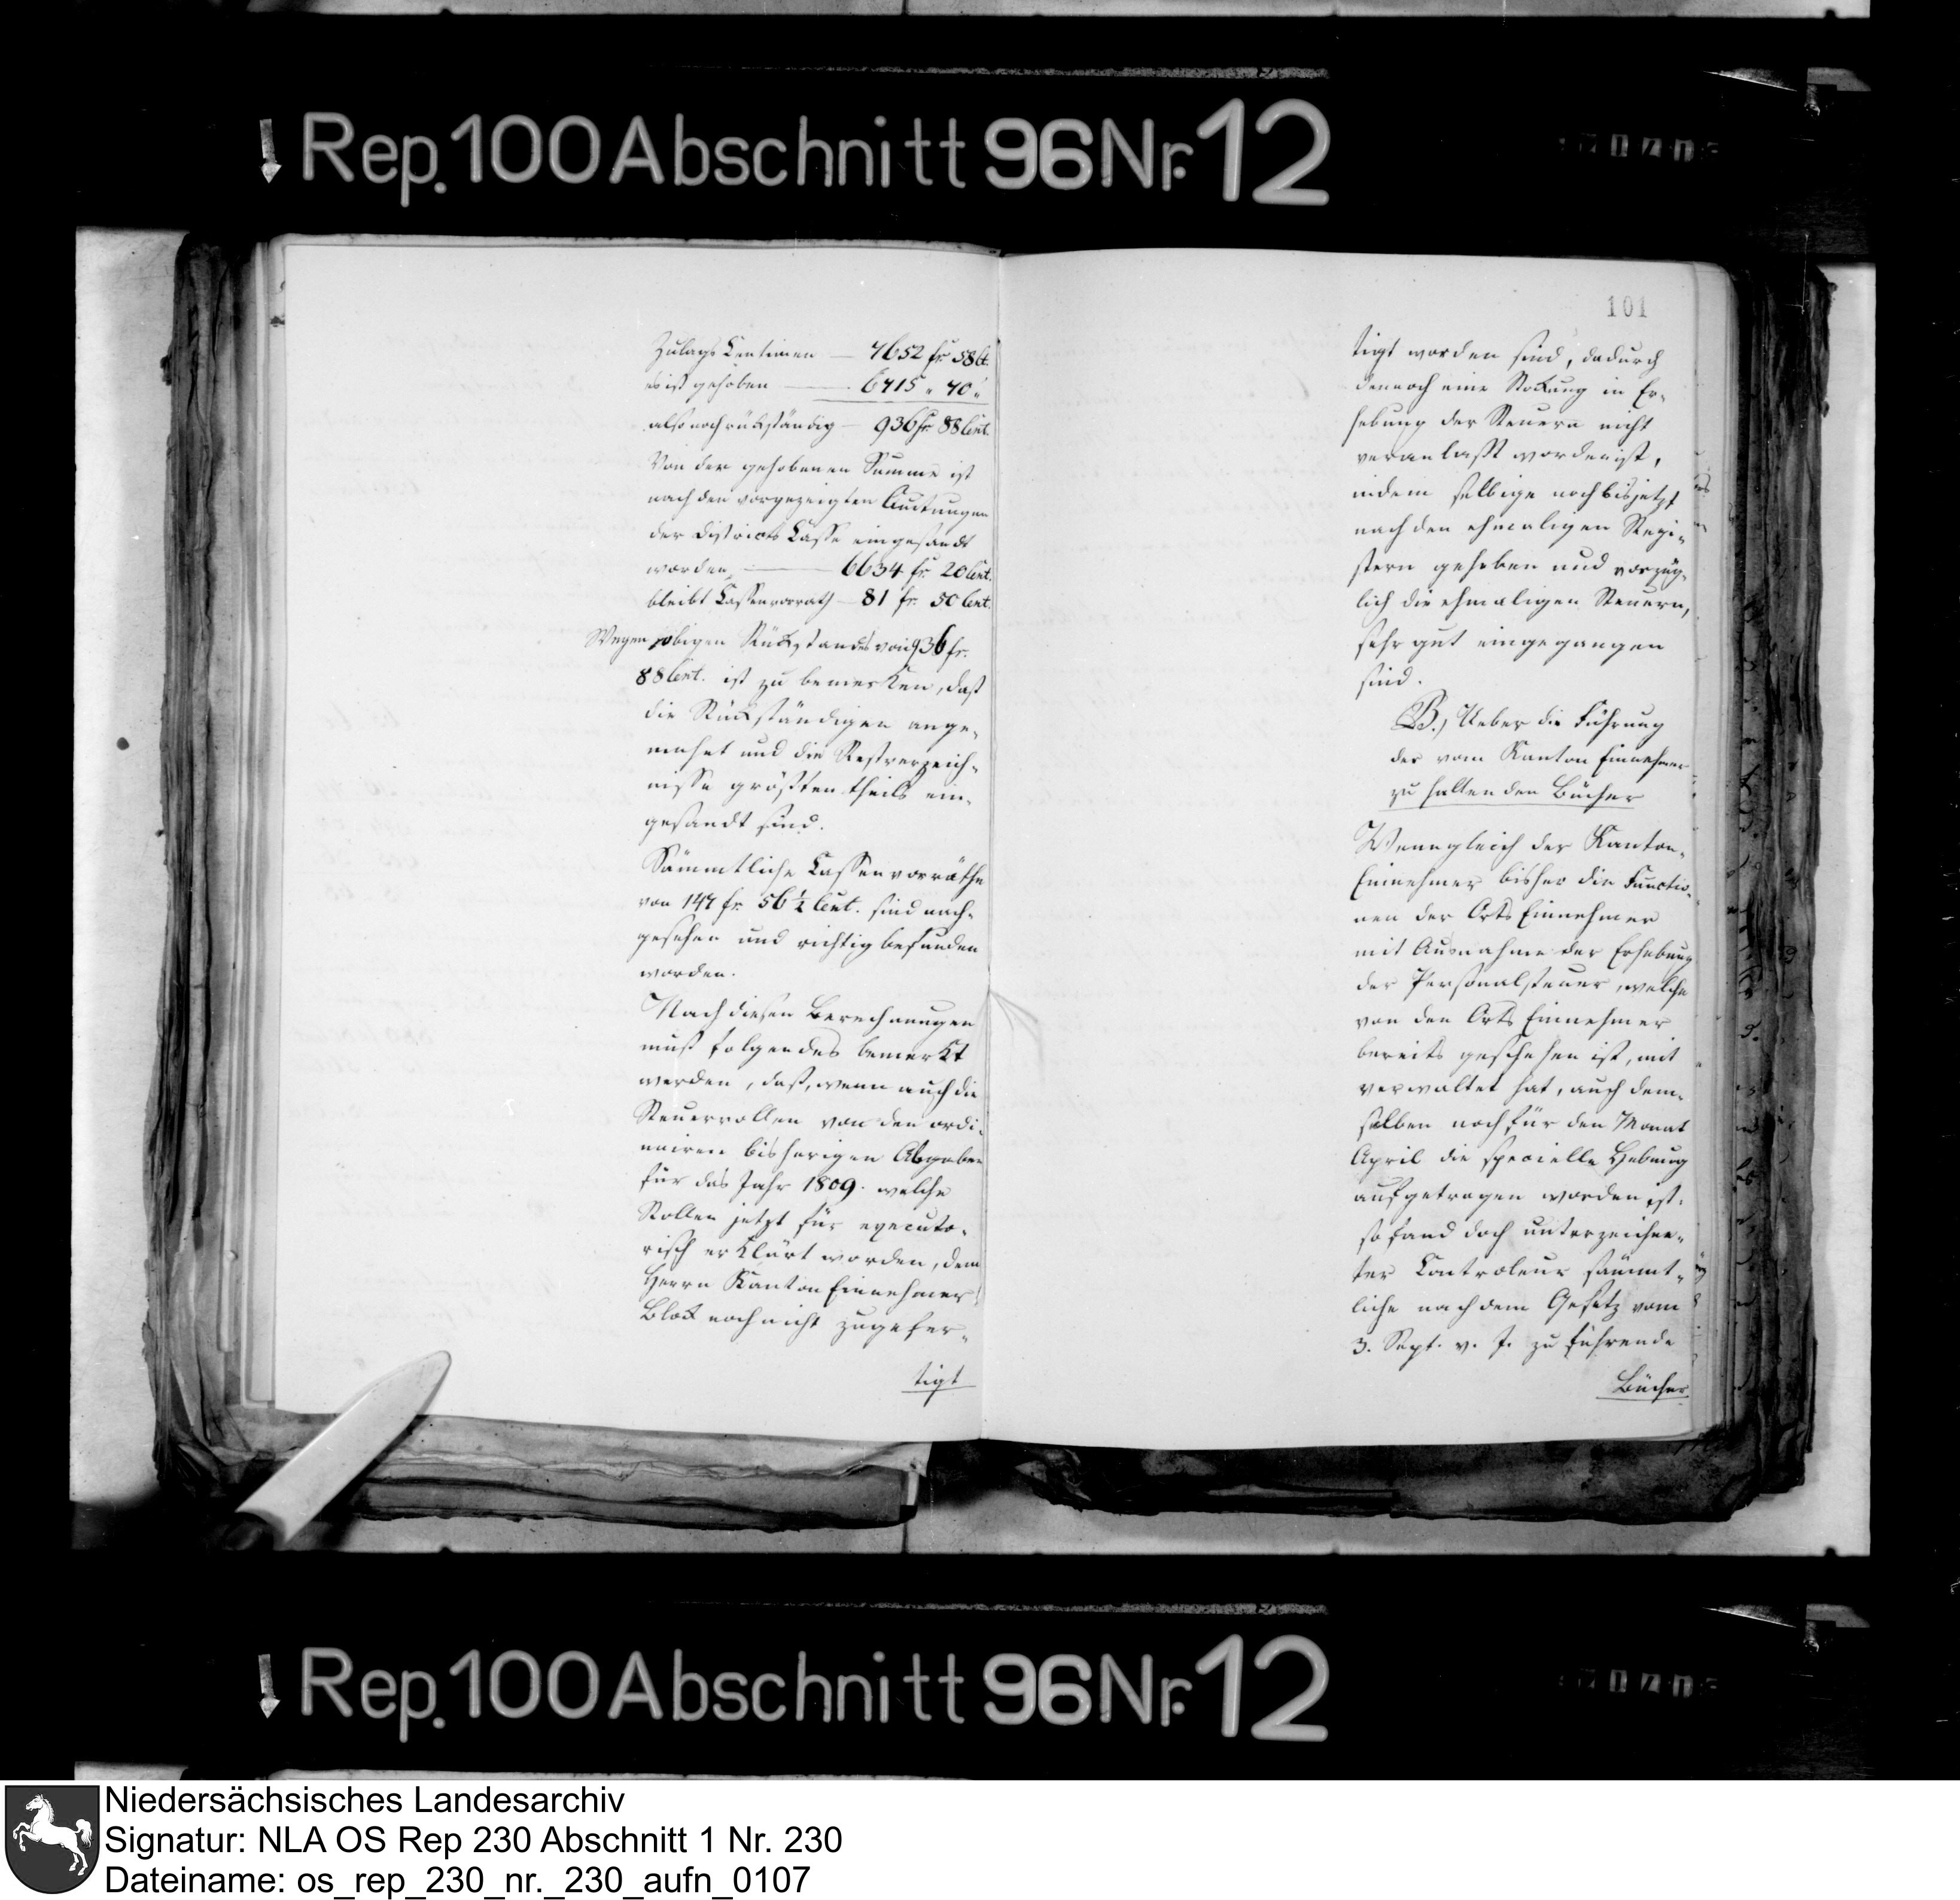 Rep. 100 Abschnitt 96 Nr. 12
Zulags Centimen — 7652 fr 58 Ct.
es ist gehoben — 6715 „ 70 „
also noch rückständig — 936 fr 88 Cent.
Von der gehobenen Summe ist
nach den vorgezeigten Quitungen
der Districts Casse eingesandt
worden — 6634 fr. 20 Cent.
bleibt Cassenvorrath — 81 fr. 50 Cent.
Wegen obigen Rückstandes von 936 fr.
88 Cent. ist zu bemerken, daß
die Rückständigen ange-
mahnt und die Restverzeich-
nisse größtentheils ein-
gesandt sind.
Sämmtliche Cassenvorräthe
von 147 fr 56 ½ Cent. sind nach-
gesehen und richtig befunden
worden.
Nach diesen Berechnungen
muß folgendes bemerkt
werden, daß, wenn auch die
Steuerrollen von den ordi-
nairen bisherigen Abgaben
für das Jahr 1809. welche
Rollen jetzt für executo-
risch erklärt worden, dem
Herrn Kanton Einnehmer
Block noch nicht zugefer-
tigt
101
tigt worden sind, dadurch
dennoch eine Stockung in Er-
hebung der Steuern nicht
veranlaßt worden ist,
indem selbige noch bis jetzt
nach den ehmaligen Regi-
stern gehoben und vorzüg-
lich die ehmaligen Steuern,
sehr gut eingegangen
sind.
B.) Ueber die Führung
der vom Kanton Einnehmer
zu haltenden Bücher
Wenngleich der Kanton-
Einnehmer bisher die Functio-
nen der Orts Einnehmer
mit Ausnahme der Erhebung
der Personalsteuer, welche
von den Orts Einnehmer
bereits geschehen ist, mit
verwaltet hat, auch dem-
selben noch für den Monat
April die specielle Hebung
aufgetragen worden ist:
so fand doch unterzeichne-
ter Controleur sämmt-
liche nach dem Gesetz vom
3. Sept. v. J. zu führende
Bücher
Rep. 100 Abschnitt 96 Nr. 12
Niedersächsisches Landesarchiv
Signatur: NLA OS Rep 230 Abschnitt 1 Nr. 230
Dateiname: os_rep_230_nr._230_aufn_0107